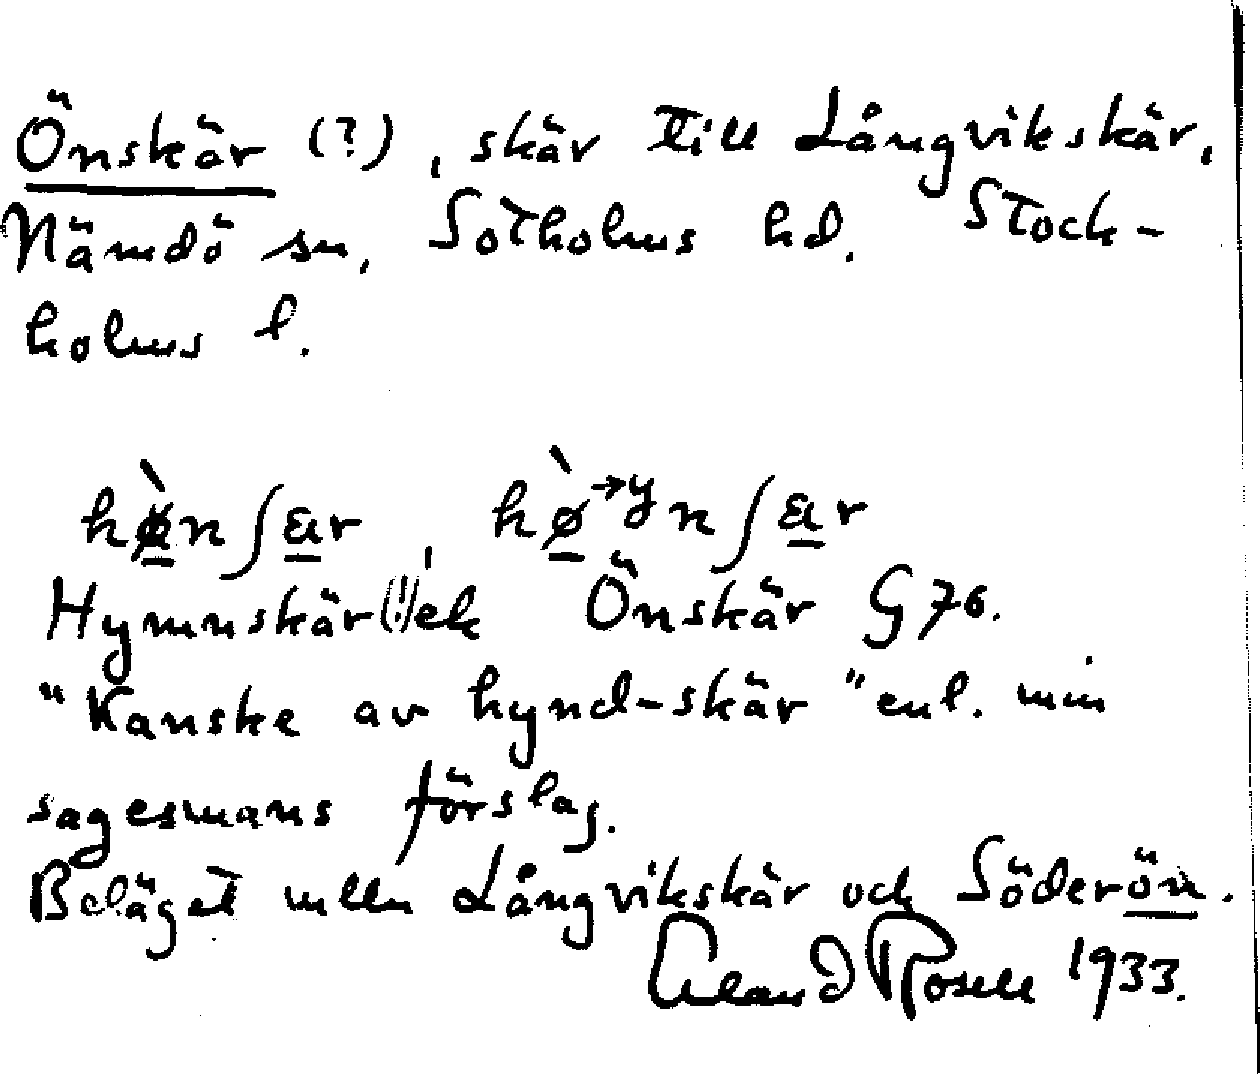 Önskär (?), skär till Långvikskär,
Nämdö sn, Sotholms hd. Stock-
holms l.
hø̀nʃær, hø̀→ynʃær
Hymnskär(!) ek Önskär G 76.
"Kanske av hynd-skär" enl. min
sagesmans förslag.
Beläget mlln Långvikskär och Söderön.
Erland Rosell 1933.